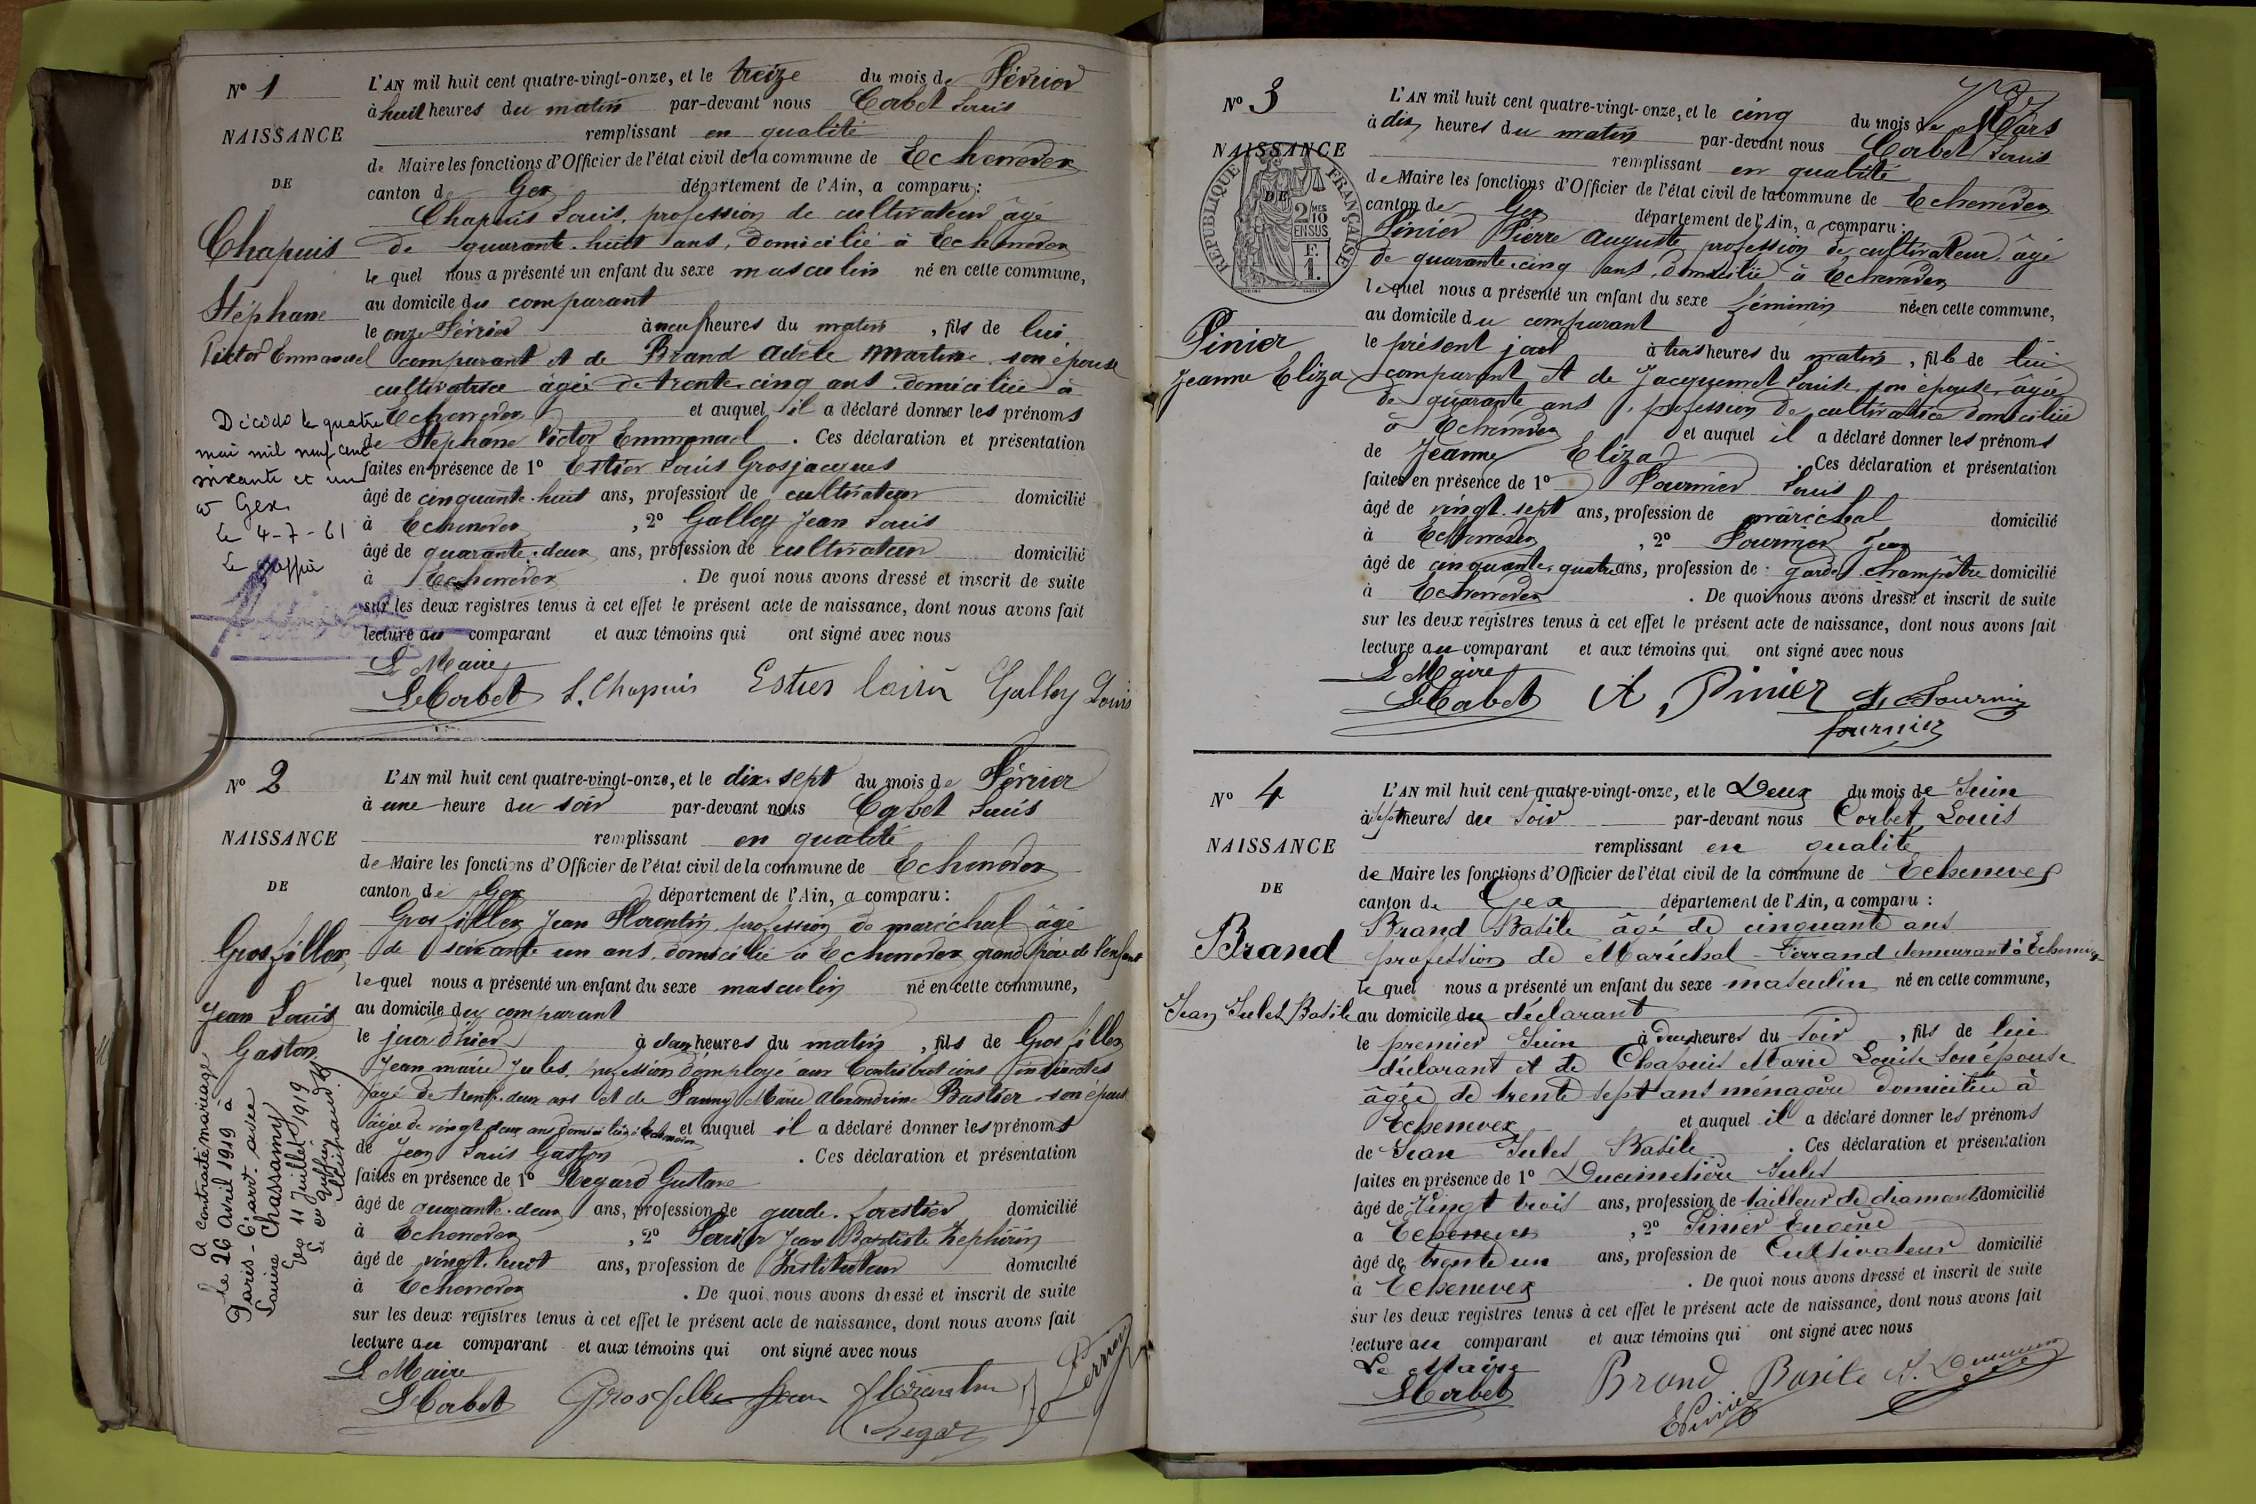 N° 1
NAISSANCE
DE
Chapuis
Stéphane
Victor Emmanuel
Décédé le quatre
mai mil neuf cent
soixante et un
à Gex
le 4-7-61
Le greffier
L'AN mil huit cent quatre-vingt-onze, et le treize du mois de Février
à huit heures du matin par-devant nous Corbet Louis
remplissant en qualité
de Maire les fonctions d'Officier de l'état civil de la commune de Echenevex
canton de Gex département de l'Ain, a comparu :
Chapuis Louis, profession de cultivateur âgé
de quarante-huit ans, domicilié à Echenevex
lequel nous a présenté un enfant du sexe masculin né en cette commune,
au domicile du comparant
le onze Février à neuf heures du matin, fils de lui
comparant et de Brand Adèle Martine son épouse
cultivatrice âgée de trente-cinq ans domiciliée à
Echenevex et auquel il a déclaré donner les prénoms
de Stéphane Victor Emmanuel. Ces déclaration et présentation
faites en présence de 1° Estier Louis Grosjacques
âgé de cinquante-huit ans, profession de cultivateur domicilié
à Echenevex, 2° Galley Jean Louis
âgé de quarante-deux ans, profession de cultivateur domicilié
à Echenevex. De quoi nous avons dressé et inscrit de suite
sur les deux registres tenus à cet effet le présent acte de naissance, dont nous avons fait
lecture au comparant et aux témoins qui ont signé avec nous
Le Maire
Ls Corbet L. Chapuis Estier Louis Galley Louis
N° 2
NAISSANCE
DE
Grosfillex
Jean Louis
Gaston
A contracté mariage
le 26 Avril 1919 à
Paris - 6e arrt. avec
Louise Chassamy
Gex 11 juillet 1919
Le Greffier
L'AN mil huit cent quatre-vingt-onze, et le dix-sept du mois de Février
à une heure du soir par-devant nous Corbet Louis
remplissant en qualité
de Maire les fonctions d'Officier de l'état civil de la commune de Echenevex
canton de Gex département de l'Ain, a comparu :
Grosfillex Jean Florentin profession de maréchal âgé
de soixante un ans, domicilié à Echenevex grand père de l'enfant
lequel nous a présenté un enfant du sexe masculin né en cette commune,
au domicile du comparant
le jour d'hier à deux heures du matin, fils de Grosfillex
Jean marie Jules, profession d'employé aux Contributions indirectes
âgé de trente-deux ans et de Fanny Marie Alexandrine Bastier son épouse
âgée de vingt deux ans domiciliée à Echenevex et auquel il a déclaré donner les prénoms
de Jean Louis Gaston. Ces déclaration et présentation
faites en présence de 1° Regard Gustave
âgé de quarante-deux ans, profession de garde forestier domicilié
à Echenevex, 2° Perrier Jean Baptiste Zéphirin
âgé de vingt-huit ans, profession de Instituteur domicilié
à Echenevex. De quoi nous avons dressé et inscrit de suite
sur les deux registres tenus à cet effet le présent acte de naissance, dont nous avons fait
lecture au comparant et aux témoins qui ont signé avec nous
Le Maire
Ls Corbet Grosfillex Jean Florentin
Regard
N° 3
NAISSANCE
DE
RÉPUBLIQUE FRANÇAISE
2/10 MES EN SUS
Pinier
Jeanne Eliza
L'AN mil huit cent quatre-vingt-onze, et le cinq du mois de Mars
à dix heures du matin par-devant nous Corbet Louis
remplissant en qualité
de Maire les fonctions d'Officier de l'état civil de la commune de Echenevex
canton de Gex département de l'Ain, a comparu :
Pinier Pierre Auguste, profession de cultivateur, âgé
de quarante-cinq ans, domicilié à Echenevex
lequel nous a présenté un enfant du sexe féminin née en cette commune,
au domicile du comparant
le présent jour à trois heures du matin, fille de lui
comparant et de Jacquemet Louise son épouse, âgée
de quarante ans, profession de cultivatrice domiciliée
à Echenevex et auquel il a déclaré donner les prénoms
de Jeanne Eliza. Ces déclaration et présentation
faites en présence de 1° Fournier Louis
âgé de vingt-sept ans, profession de maréchal domicilié
à Echenevex, 2° Fournier Jean
âgé de cinquante-quatre ans, profession de garde champêtre domicilié
à Echenevex. De quoi nous avons dressé et inscrit de suite
sur les deux registres tenus à cet effet le présent acte de naissance, dont nous avons fait
lecture au comparant et aux témoins qui ont signé avec nous
Le Maire
Ls Corbet A. Pinier L. Fournier
fournier
N° 4
NAISSANCE
DE
Brand
Jean Jules Basile
L'AN mil huit cent quatre-vingt-onze, et le Deux du mois de Juin
à sept heures du soir par-devant nous Corbet Louis
remplissant en qualité
de Maire les fonctions d'Officier de l'état civil de la commune de Echenevex
canton de Gex département de l'Ain, a comparu :
Brand Basile âgé de cinquante ans
profession de Maréchal-Ferrand demeurant à Echenevex
lequel nous a présenté un enfant du sexe masculin né en cette commune,
au domicile du déclarant
le premier Juin à deux heures du soir, fils de lui
déclarant et de Chapuis Marie Louise son épouse
âgée de trente sept ans ménagère domiciliée à
Echenevex et auquel il a déclaré donner les prénoms
de Jean Jules Basile. Ces déclaration et présentation
faites en présence de 1° Ducimetière Jules
âgé de Vingt trois ans, profession de tailleur de diamants domicilié
à Echenevex, 2° Pinier Eugène
âgé de trente un ans, profession de Cultivateur domicilié
à Echenevex. De quoi nous avons dressé et inscrit de suite
sur les deux registres tenus à cet effet le présent acte de naissance, dont nous avons fait
lecture au comparant et aux témoins qui ont signé avec nous
Le Maire
Ls Corbet Brand Basile
E Pinier